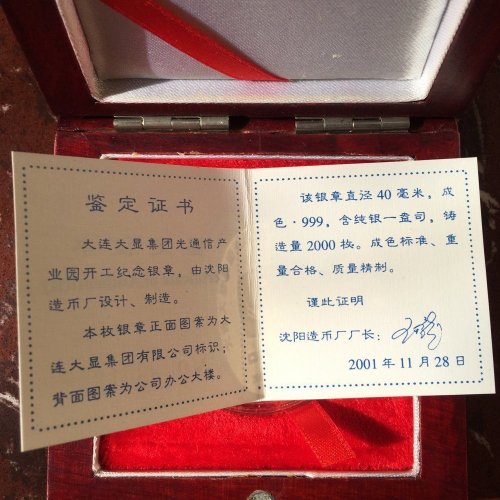 鉴定证书
大连大显集团光通信产
业园开工纪念银章，由沈阳
造币厂设计、制造。
本枚银章正面图案为大
连大显集团有限公司标识；
背面图案为公司办公大楼。
该银章直径40毫米，成
色·999，含纯银一盎司，铸
造量2000枚。成色标准、重
量合格、质量精制。
谨此证明
沈阳造币厂厂长：
2001年11月28日